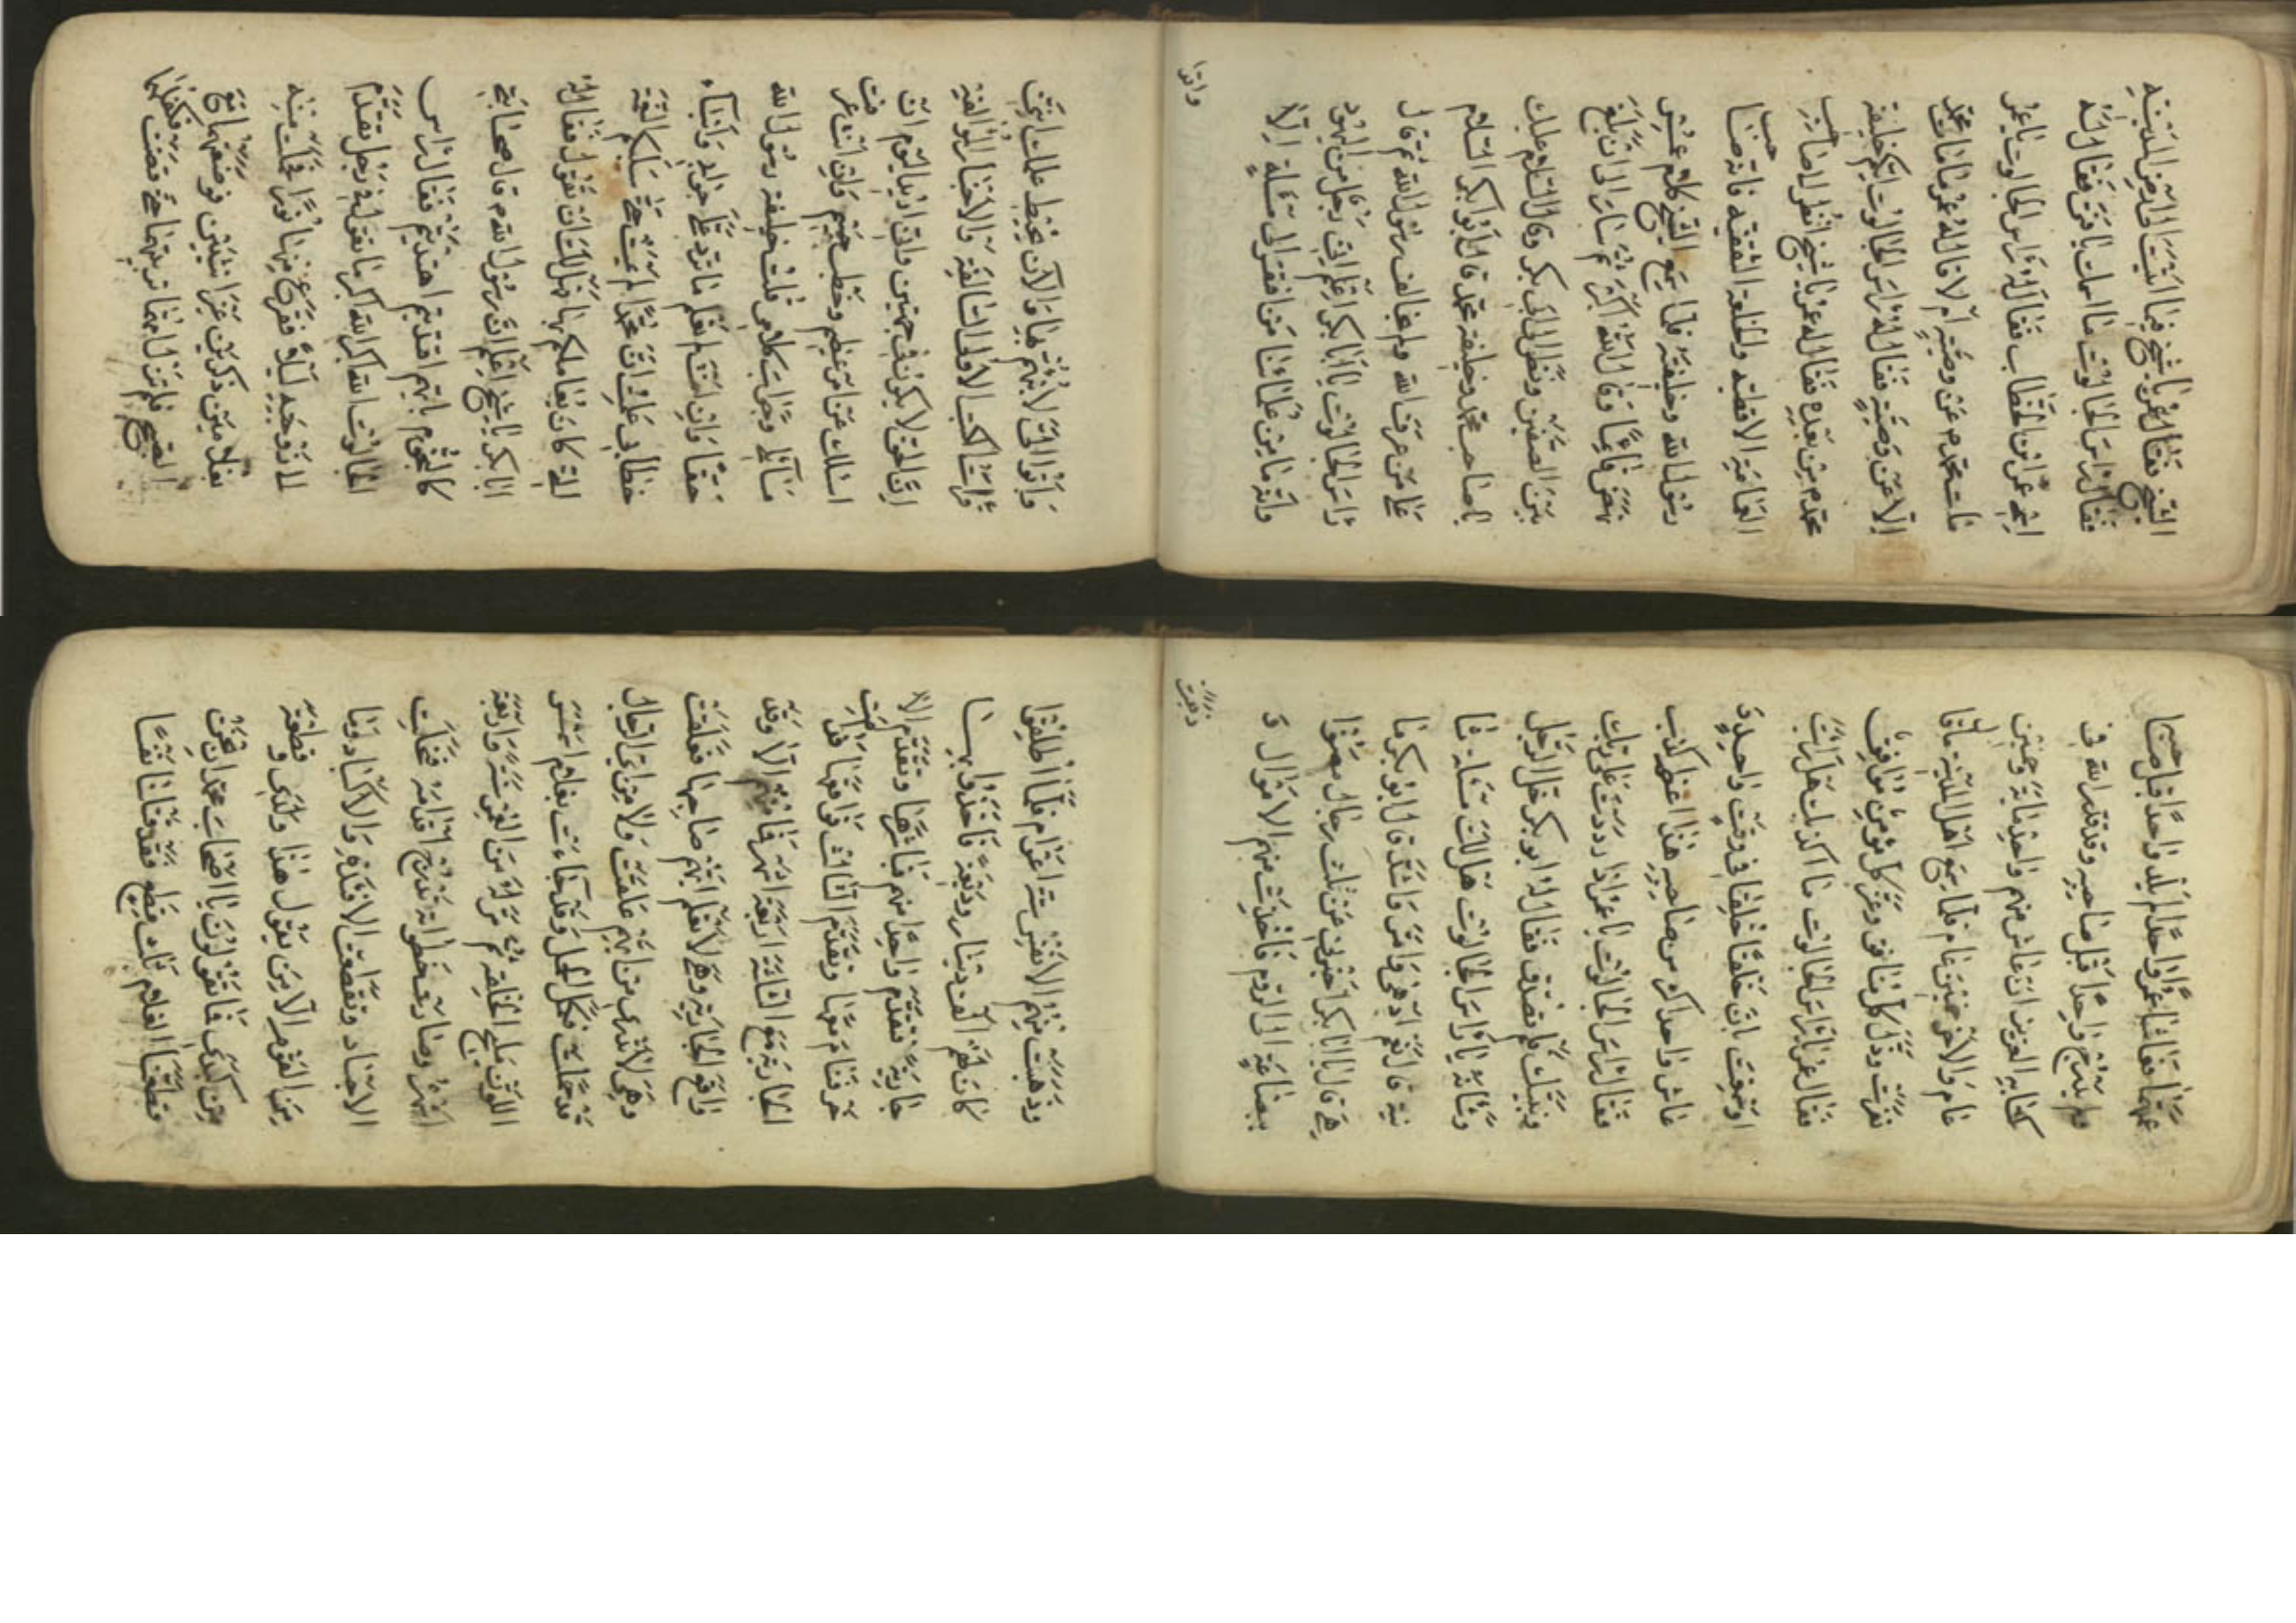 الشيخ فقال عمر يا شيخ فما اتيت الى من المدينة
فقال راس الجالوت ما اسمك يا فتى فقال له
اسمي عمر ابن الخطاب فقال له راس الجالوت يا عمر
مات محمد م عن وصية ام لا قال له عمر ما مات محمد
الا عن وصية فقال له راس الجالوت ايكم خليفة
محمد م من بعده فقال له عمر يا شيخ انظر لا صاحب
العمامة والحلة فانه صاحب
رسول الله وخليفته فلما سمع الشيخ كلام عمر
نهض قائما وقال الله اكبر ثم سار الى ان بلغ
بين الصفين ونظر الى ابي بكر وقال السلام عليك
يا صاحب محمد وخليفة محمد قال ابو بكر السلام
على من عرف الله ولم يخالف رسول الله ثم قال
راس الجالوت يا ابا بكر اعلم اني رجل من اليهود
وانه ما من علمائنا من افتقر الى مسئلة الا
واتوا الي لانبئهم بها والان نحيط علمك اني
قرات الكتب الاولة السالفة والاخبار المؤلفة
ان الحق لا يكون في جهتين واني اريد اليوم ان
اسئلك عن امر عظيم وخطب جسيم فان انت عرفت
مسائلي وجواب كلامي قلت خليفة رسول الله
حقا وان لم تعلم ما ترد علي جوابي وانباء
خطابي علمت ان محمدا لم يمت حتى سلم
ابا بكر يا شيخ اعلم ان رسول الله م قال صحابتي
كالنجوم بايهم اقتديتم اهتديتم فقال راس
الجالوت الله اكبر الله اكبر ما تقول في رجل تقدم
لزوجته ليلا ففرغ منها نورا فحملت منه
بغلامين ذكرين غير انثيين فوضعتهما مع
الصبح فلم تزل امهما تربيهما حتى
عمرا فعاشا عمرا واحدا لم يلد واحدا قبل صاحبه
ولم يدرج واحدا قبل صاحبه وقد قدر الله في
كتابه العزيز ان عاش منهم واحد مائة وخمسين
عام والاخر خمسين عام فلما سمع اهل المدينة
نفرت كل منافق كل مؤمن موافق
فقال عمر يا راس الجالوت ما اكذبك هل رايت
او سمعت بان خلقا خلقا في وقت واحد و
عاش واحد اكثر من صاحبه هذا اعظم كذب
فقال راس الجالوت يا عمر اذا رددت على ربك
ونبيك فلم تصدق فقال له ابو بكر خل الرجل
وشانه يا راس الجالوت هل لك مسالة ثا
نية قال نعم ادهى وامر واشد قال ابو بكر ما
هي قال يا ابا بكر اخبرني عن ثلث رجال مضوا
ببضاعة الى الروم فاخذت منهم الاموال و
ذهبت
وذهبت منهم الانفس ستة اعوام فلما اطلقوا
كان لهم الف دينار وديعة فاخذوا بها
جارية فتقدم واحدا منهم فباشرها وتقدم الا
خر فنام معها وتقدم الثالث فواقعها فقامت
الجارية مع الثلثة اربعة اشهر فما منهم الا وقد
واقع الجارية وهي لا تعلم ايهم صاحبها فعلقت
وهي لا تدري من ايهم علقت ولا من اي الرجال
قد حملت فكمل الحمل وقد جاءت بغلام احسن
اللون مليح الخلقة ثم ترك من العمر سنة واربعة
اشهر وصار يخطوا تدرج اقدامه
الاجناد وتقطعت الافئدة والاكباد ودنا
من القوم يقول هذا ولدي وقطعة
من كبدي فما تقولون يا اصحاب محمد ان نحن
قطعنا الغلام ثلث قطع فقد قتلنا نفسا